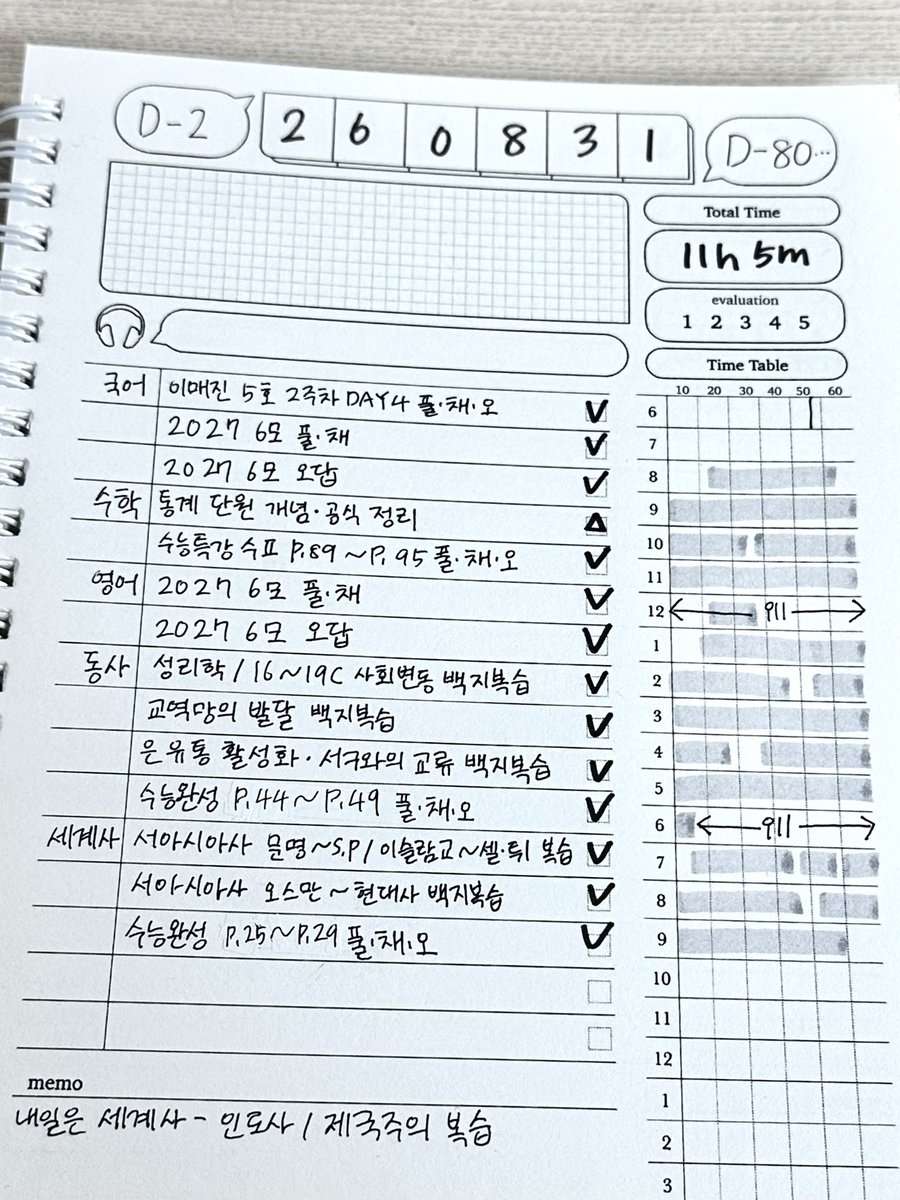 D-2 2 6 0 8 3 1 D-80...
Total Time
11h 5m
evaluation
1 2 3 4 5
Time Table
국어 이매진 5호 2주차 DAY4 풀·채·오
2027 6모 풀·채
2027 6모 오답
수학 통계 단원 개념·공식 정리
수능특강 수교 P.89 ~ P.95 풀·채·오
영어 2027 6모 풀·채
2027 6모 오답
동사 성리학 / 16~19C 사회변동 백지복습
교역망의 발달 백지복습
은 유통 활성화·서구와의 교류 백지복습
수능완성 P.44 ~ P.49 풀·채·오
세계사 서아시아사 문명~S.P / 이슬람교~셀·튀 복습
서아시아사 오스만 ~ 현대사 백지복습
수능완성 P.25 ~ P.29 풀·채·오
memo
내일은 세계사 - 인도사 / 제국주의 복습
10 20 30 40 50 60
6
7
8
9
10
11
12
1
2
3
4
5
6
7
8
9
10
11
12
1
2
3